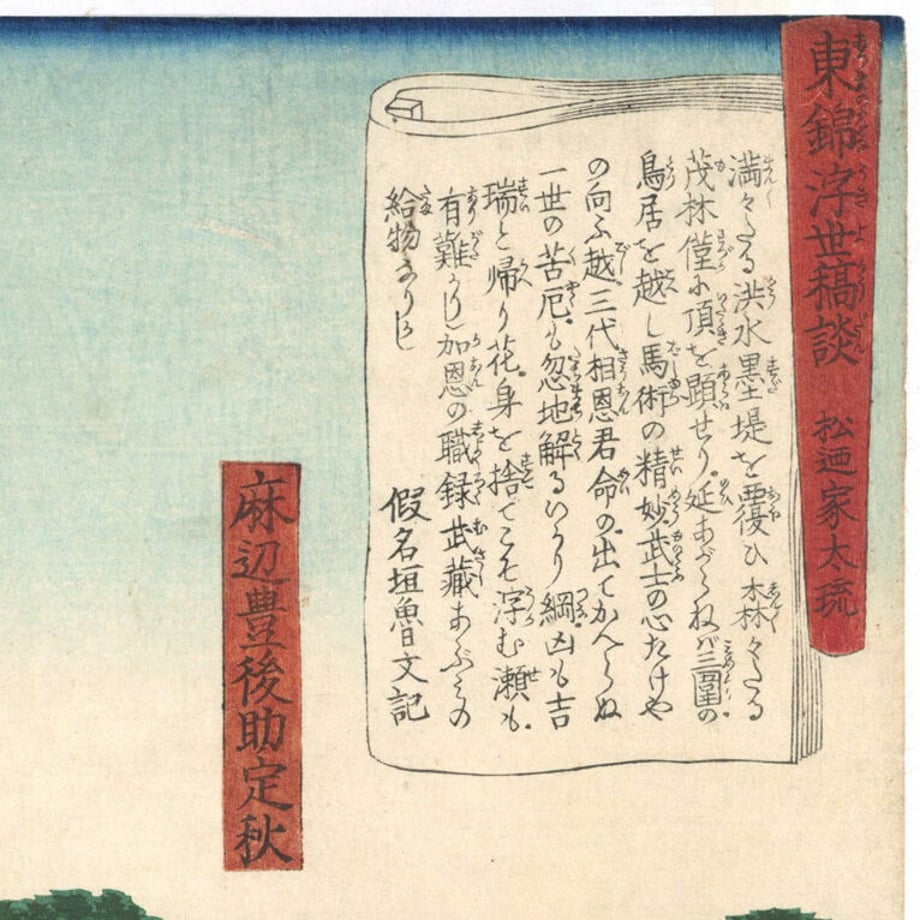 東錦浮世稿談
松廼家太琉
満々たる洪水墨堤を覆ひ森々たる
茂林僅に頂を顕せり延あがらねバ三囲の
鳥居を越し馬術の精妙武士の心たけや
の向ふ越三代相恩君命の出てかへらぬ
一世の苦厄も忽地解るいかり綱凶も吉
瑞と帰り花身を捨てこそ浮む瀬も
有難かりし加恩の職録武蔵あぶみの
給物なりし
假名垣魯文記
麻辺豊後助定秋